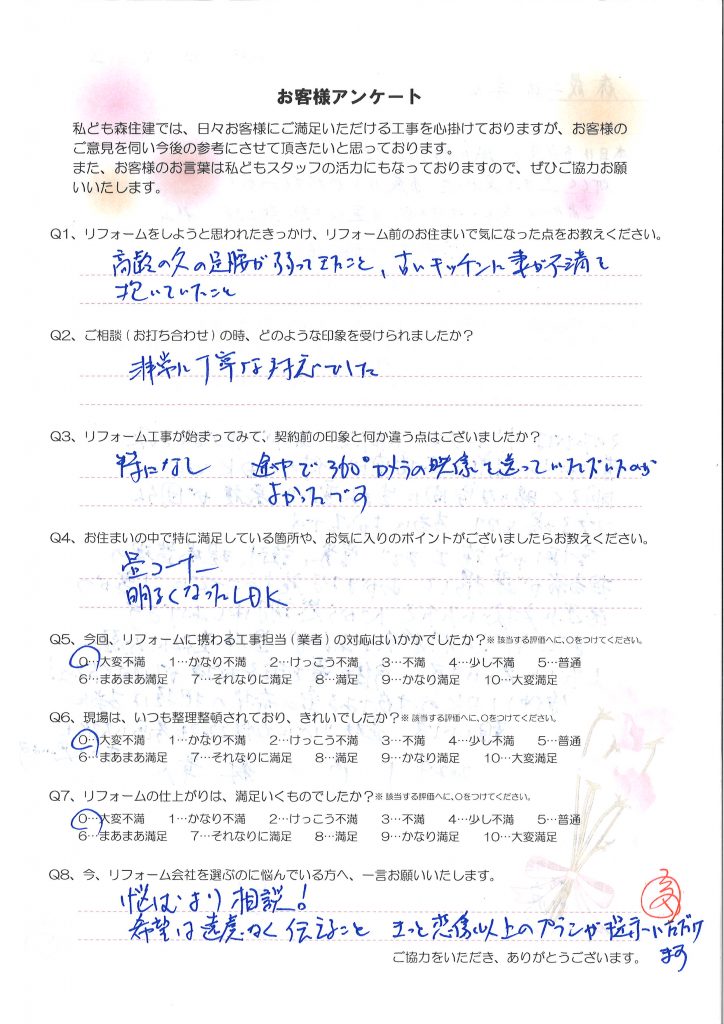 お客様アンケート
私ども森住建では、日々お客様にご満足いただける工事を心掛けておりますが、お客様の
ご意見を伺い今後の参考にさせて頂きたいと思っております。
また、お客様のお言葉は私どもスタッフの活力にもなっておりますので、ぜひご協力お願
いいたします。
Q1、リフォームをしようと思われたきっかけ、リフォーム前のお住まいで気になった点をお教えください。
高齢の父の足腰が弱ってきたこと、古いキッチンに妻が不満を
抱いていたこと
Q2、ご相談(お打ち合わせ)の時、どのような印象を受けられましたか?
非常に丁寧な対応でした
Q3、リフォーム工事が始まってみて、契約前の印象と何か違う点はございましたか?
特になし 途中で360°カメラの映像を送っていただいたのが
よかったです
Q4、お住まいの中で特に満足している箇所や、お気に入りのポイントがございましたらお教えください。
畳コーナー
明るくなったLDK
Q5、今回、リフォームに携わる工事担当(業者)の対応はいかがでしたか?※該当する評価へに、○をつけてください。
0…大変不満 1…かなり不満 2…けっこう不満 3…不満 4…少し不満 5…普通
6…まあまあ満足 7…それなりに満足 8…満足 9…かなり満足 10…大変満足
Q6、現場は、いつも整理整頓されており、きれいでしたか?※該当する評価へに、○をつけてください。
0…大変不満 1…かなり不満 2…けっこう不満 3…不満 4…少し不満 5…普通
6…まあまあ満足 7…それなりに満足 8…満足 9…かなり満足 10…大変満足
Q7、リフォームの仕上がりは、満足いくものでしたか?※該当する評価へに、○をつけてください。
0…大変不満 1…かなり不満 2…けっこう不満 3…不満 4…少し不満 5…普通
6…まあまあ満足 7…それなりに満足 8…満足 9…かなり満足 10…大変満足
Q8、今、リフォーム会社を選ぶのに悩んでいる方へ、一言お願いいたします。
悩むより相談!
希望は遠慮なく伝えること きっと想像以上のプランが提示いただけ
ます
ご協力をいただき、ありがとうございます。